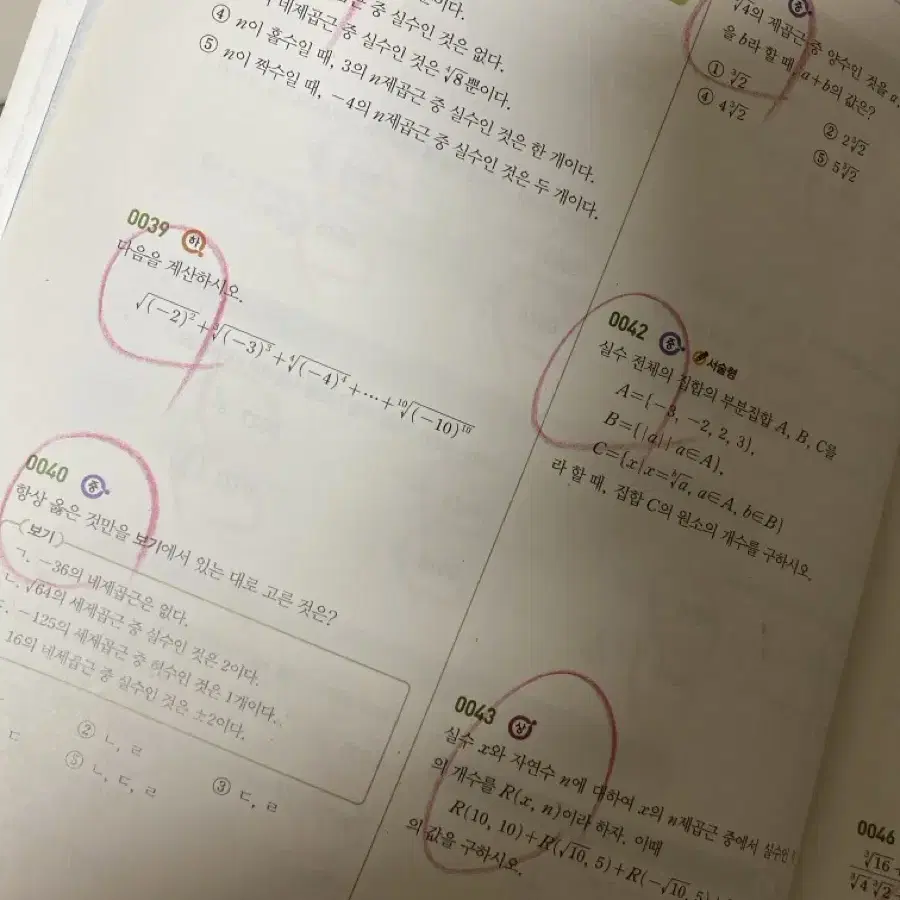 중 실수인 것은 없다.
④ 네제곱근 중 실수인 것은 ∜8뿐이다.
④ n이 홀수일 때, 3의 n제곱근 중 실수인 것은 한 개이다.
⑤ n이 짝수일 때, -4의 n제곱근 중 실수인 것은 두 개이다.
0039 하
다음을 계산하시오.
√(-2)² + ∛(-3)³ + ∜(-4)⁴ + ⋯ + ¹⁰√(-10)¹⁰
0040 중
항상 옳은 것만을 보기에서 있는 대로 고른 것은?
보기
ㄱ. -36의 네제곱근은 없다.
ㄴ. √64의 세제곱근 중 실수인 것은 2이다.
-125의 세제곱근 중 허수인 것은 1개이다.
16의 네제곱근 중 실수인 것은 ±2이다.
② ㄴ, ㄹ
③ ㄷ, ㄹ
ㄷ
⑤ ㄴ, ㄷ, ㄹ
4의 제곱근 중 양수인 것을 a,
을 b라 할 때, a+b의 값은?
① ∛2
② 2∛2
④ 4∛2
⑤ 5∛2
0042 중 서술형
실수 전체의 집합의 부분집합 A, B, C를
A={-3, -2, 2, 3},
B={|a| | a∈A},
C={x|x=ᵇ√a, a∈A, b∈B}
라 할 때, 집합 C의 원소의 개수를 구하시오.
0043 상
실수 x와 자연수 n에 대하여 x의 n제곱근 중에서 실수인
의 개수를 R(x, n)이라 하자. 이때
R(10, 10)+R(√10, 5)+R(-√10, 5)
의 값을 구하시오.
0046
∛16
∛4 ∛2